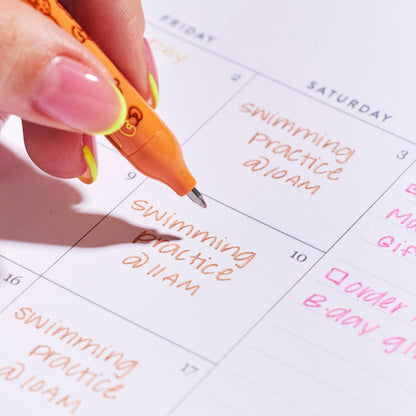 FRIDAY
SATURDAY
2
3
swimming
practice
@10AM
9
10
swimming
practice
@11AM
16
17
swimming
practice
@10AM
order
B-day